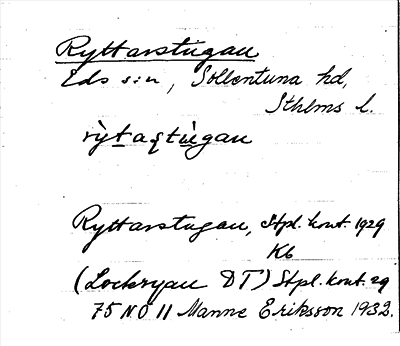 Ryttarstugan
Eds s:n, Sollentuna hd,
Sthlms l.
Ryttarstugan, Stpl. kont. 1929
K6
(Lockryau DT) Stpl. kont. 29
75 N.O 11 Manne Eriksson 1932.